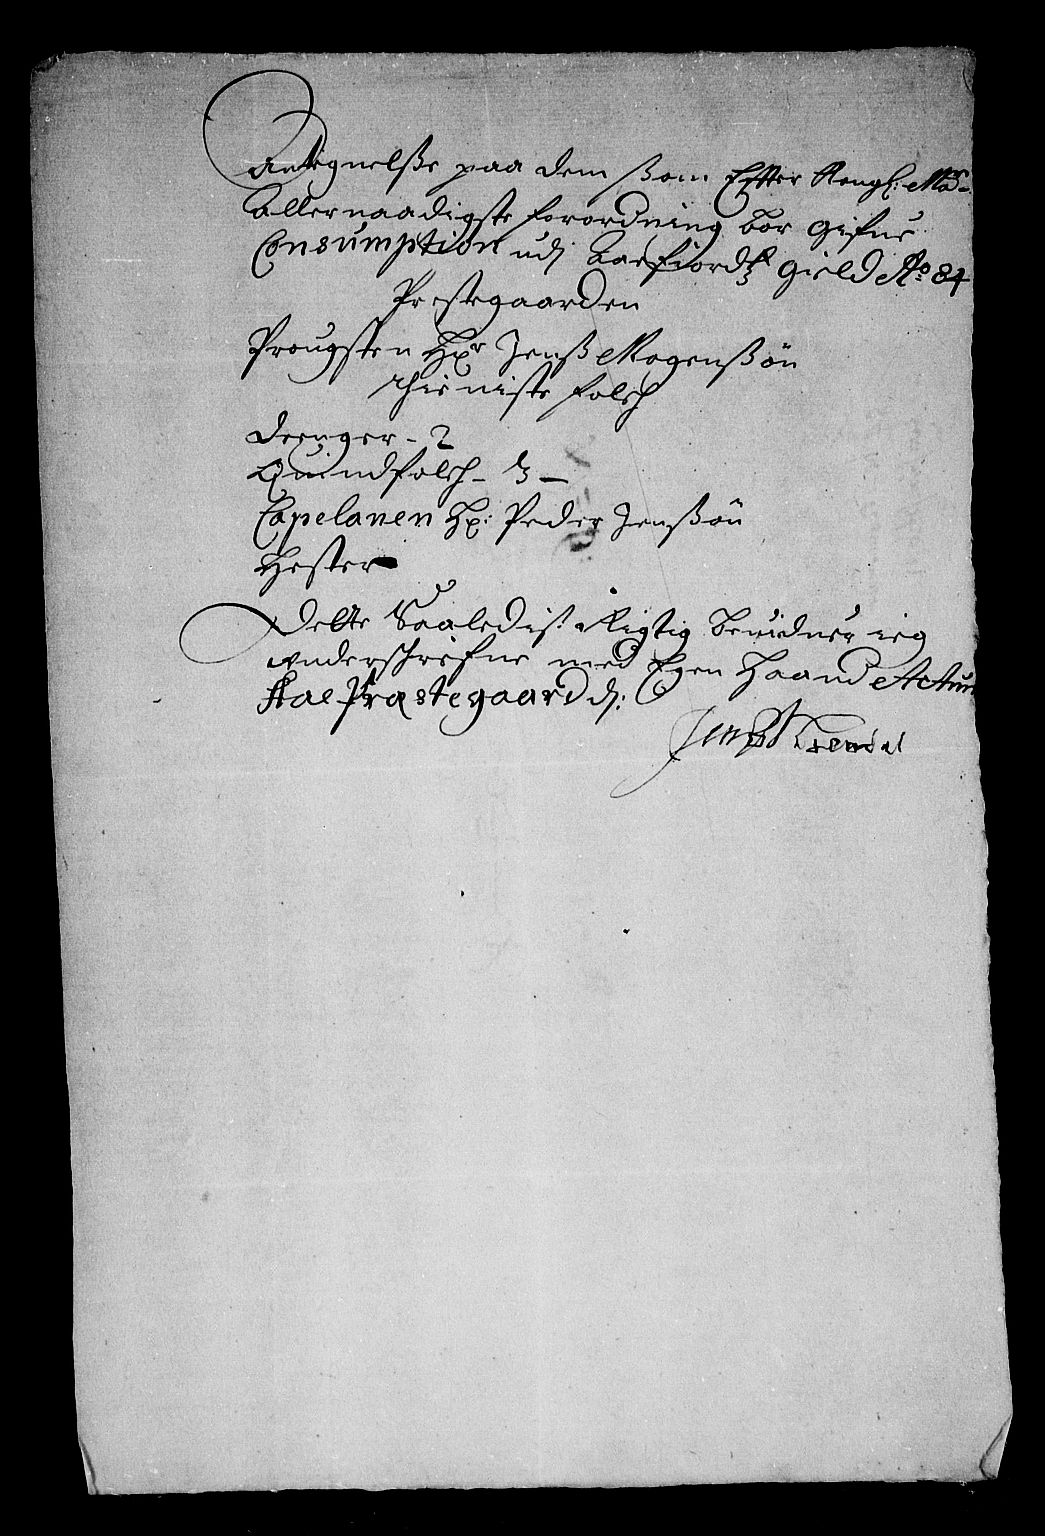 Antegnelße paa dem ßom Effter Kongl: Maÿs
Allernaadigste forordning bør gifue
Consumption udj Barfiordtz gield Ao 84
Prestegaarden
Prougsten Hr Jenß Mogenßøn
thieniste folch
drenger - 2
Quindfolch - 3 -
Capelanen Hr: Peder Jenßøn
Hester
Dette Saaledis Rigtig beuidner ieg
underschrefne med Egen haand Actum
Præstegaard d: